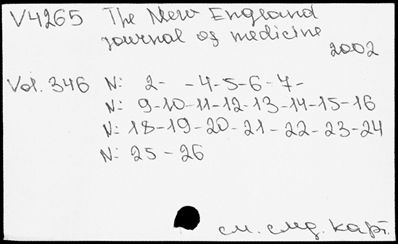 V4265 The New England
journal of medicine
2002
Vol. 346 N: 2- -4-5-6-7-
N: 9-10-11-12-13-14-15-16
N: 18-19-20-21-22-23-24
N: 25-26
см. след. карт.